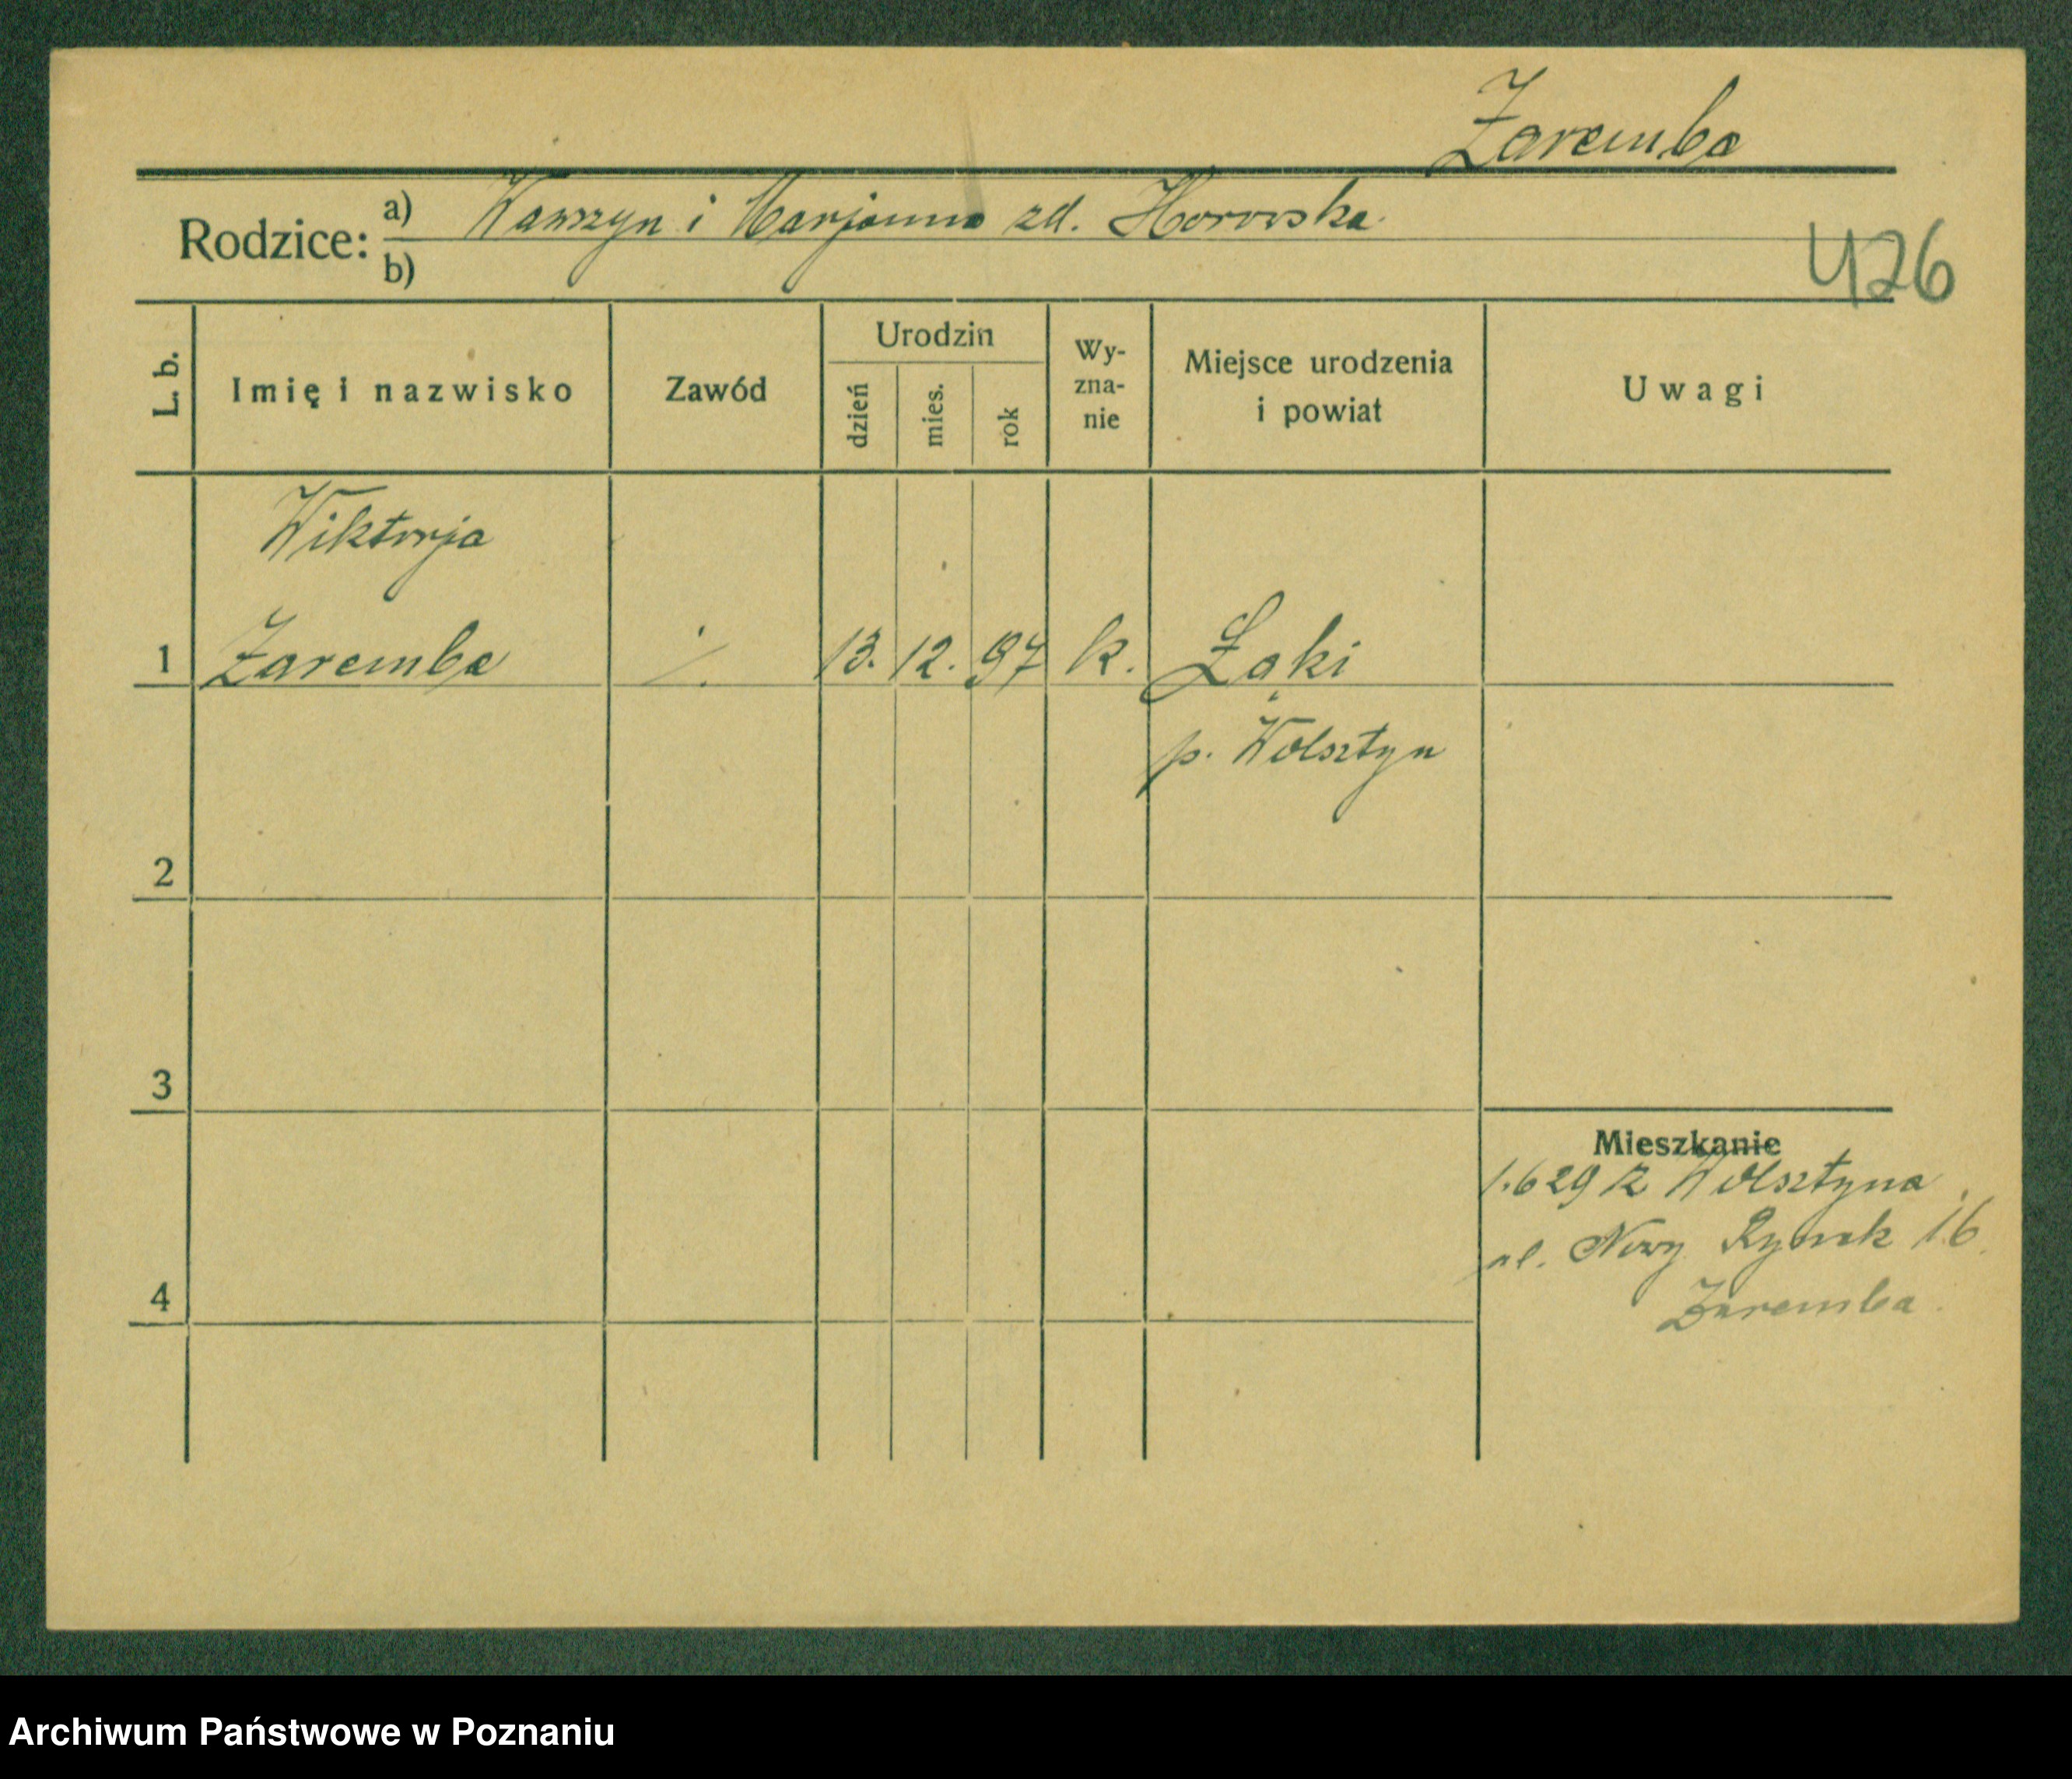 Zaremba
Rodzice: a) Wawrzyn i Marjanna zd. Horowska
b)
426
L. b. Imię i nazwisko Zawód Urodzin dzień mies. rok Wyzna-nie Miejsce urodzenia i powiat Uwagi
Wiktorja
1 Zaremba ./. 13. 12. 97 k. Łąki
p. Wolsztyn
2
3
Mieszkanie
1.6 29 z Wolsztyna
ul. Nowy Rynek 16
4 Zaremba
Archiwum Państwowe w Poznaniu